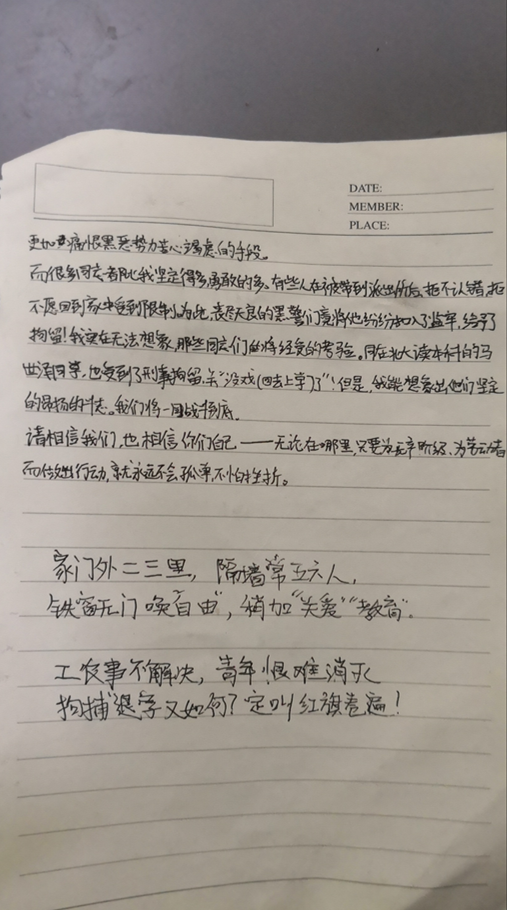 DATE:
MEMBER:
PLACE:
更加痛恨黑恶势力苦心焦虑的手段。
而很多同志都比我坚定得多勇敢的多。有些人在被带到派出所后,拒不认错,拒
不愿回到家中受到限制。为此,丧尽天良的黑警们竟将他们纷纷扣入了监牢,给予了
拘留!我实在无法想象,那些同志们即将经受的考验。同在北大读本科的马
世泽同学,也受到了刑事拘留,关“没戏(回去上学)了”!但是,我能想象出他们坚定
的昂扬的斗志。我们将一同战到底。
请相信我们,也相信你们自己——无论在哪里,只要为无产阶级、为劳动者
而做出行动,就永远不会孤单,不怕挫折。
家门外二三里,隔墙常五六人,
铁窗无门唤“自由”,稍加“关爱”“教育”。
工友事不解决,青年恨难消灭
拘捕退学又如何?定叫红旗卷遍!